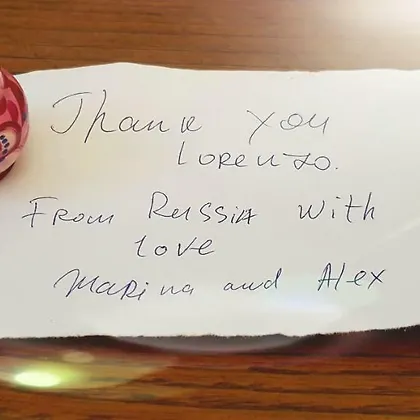 Thank you
Lorenzo.
From Russia with
love
Marina and Alex